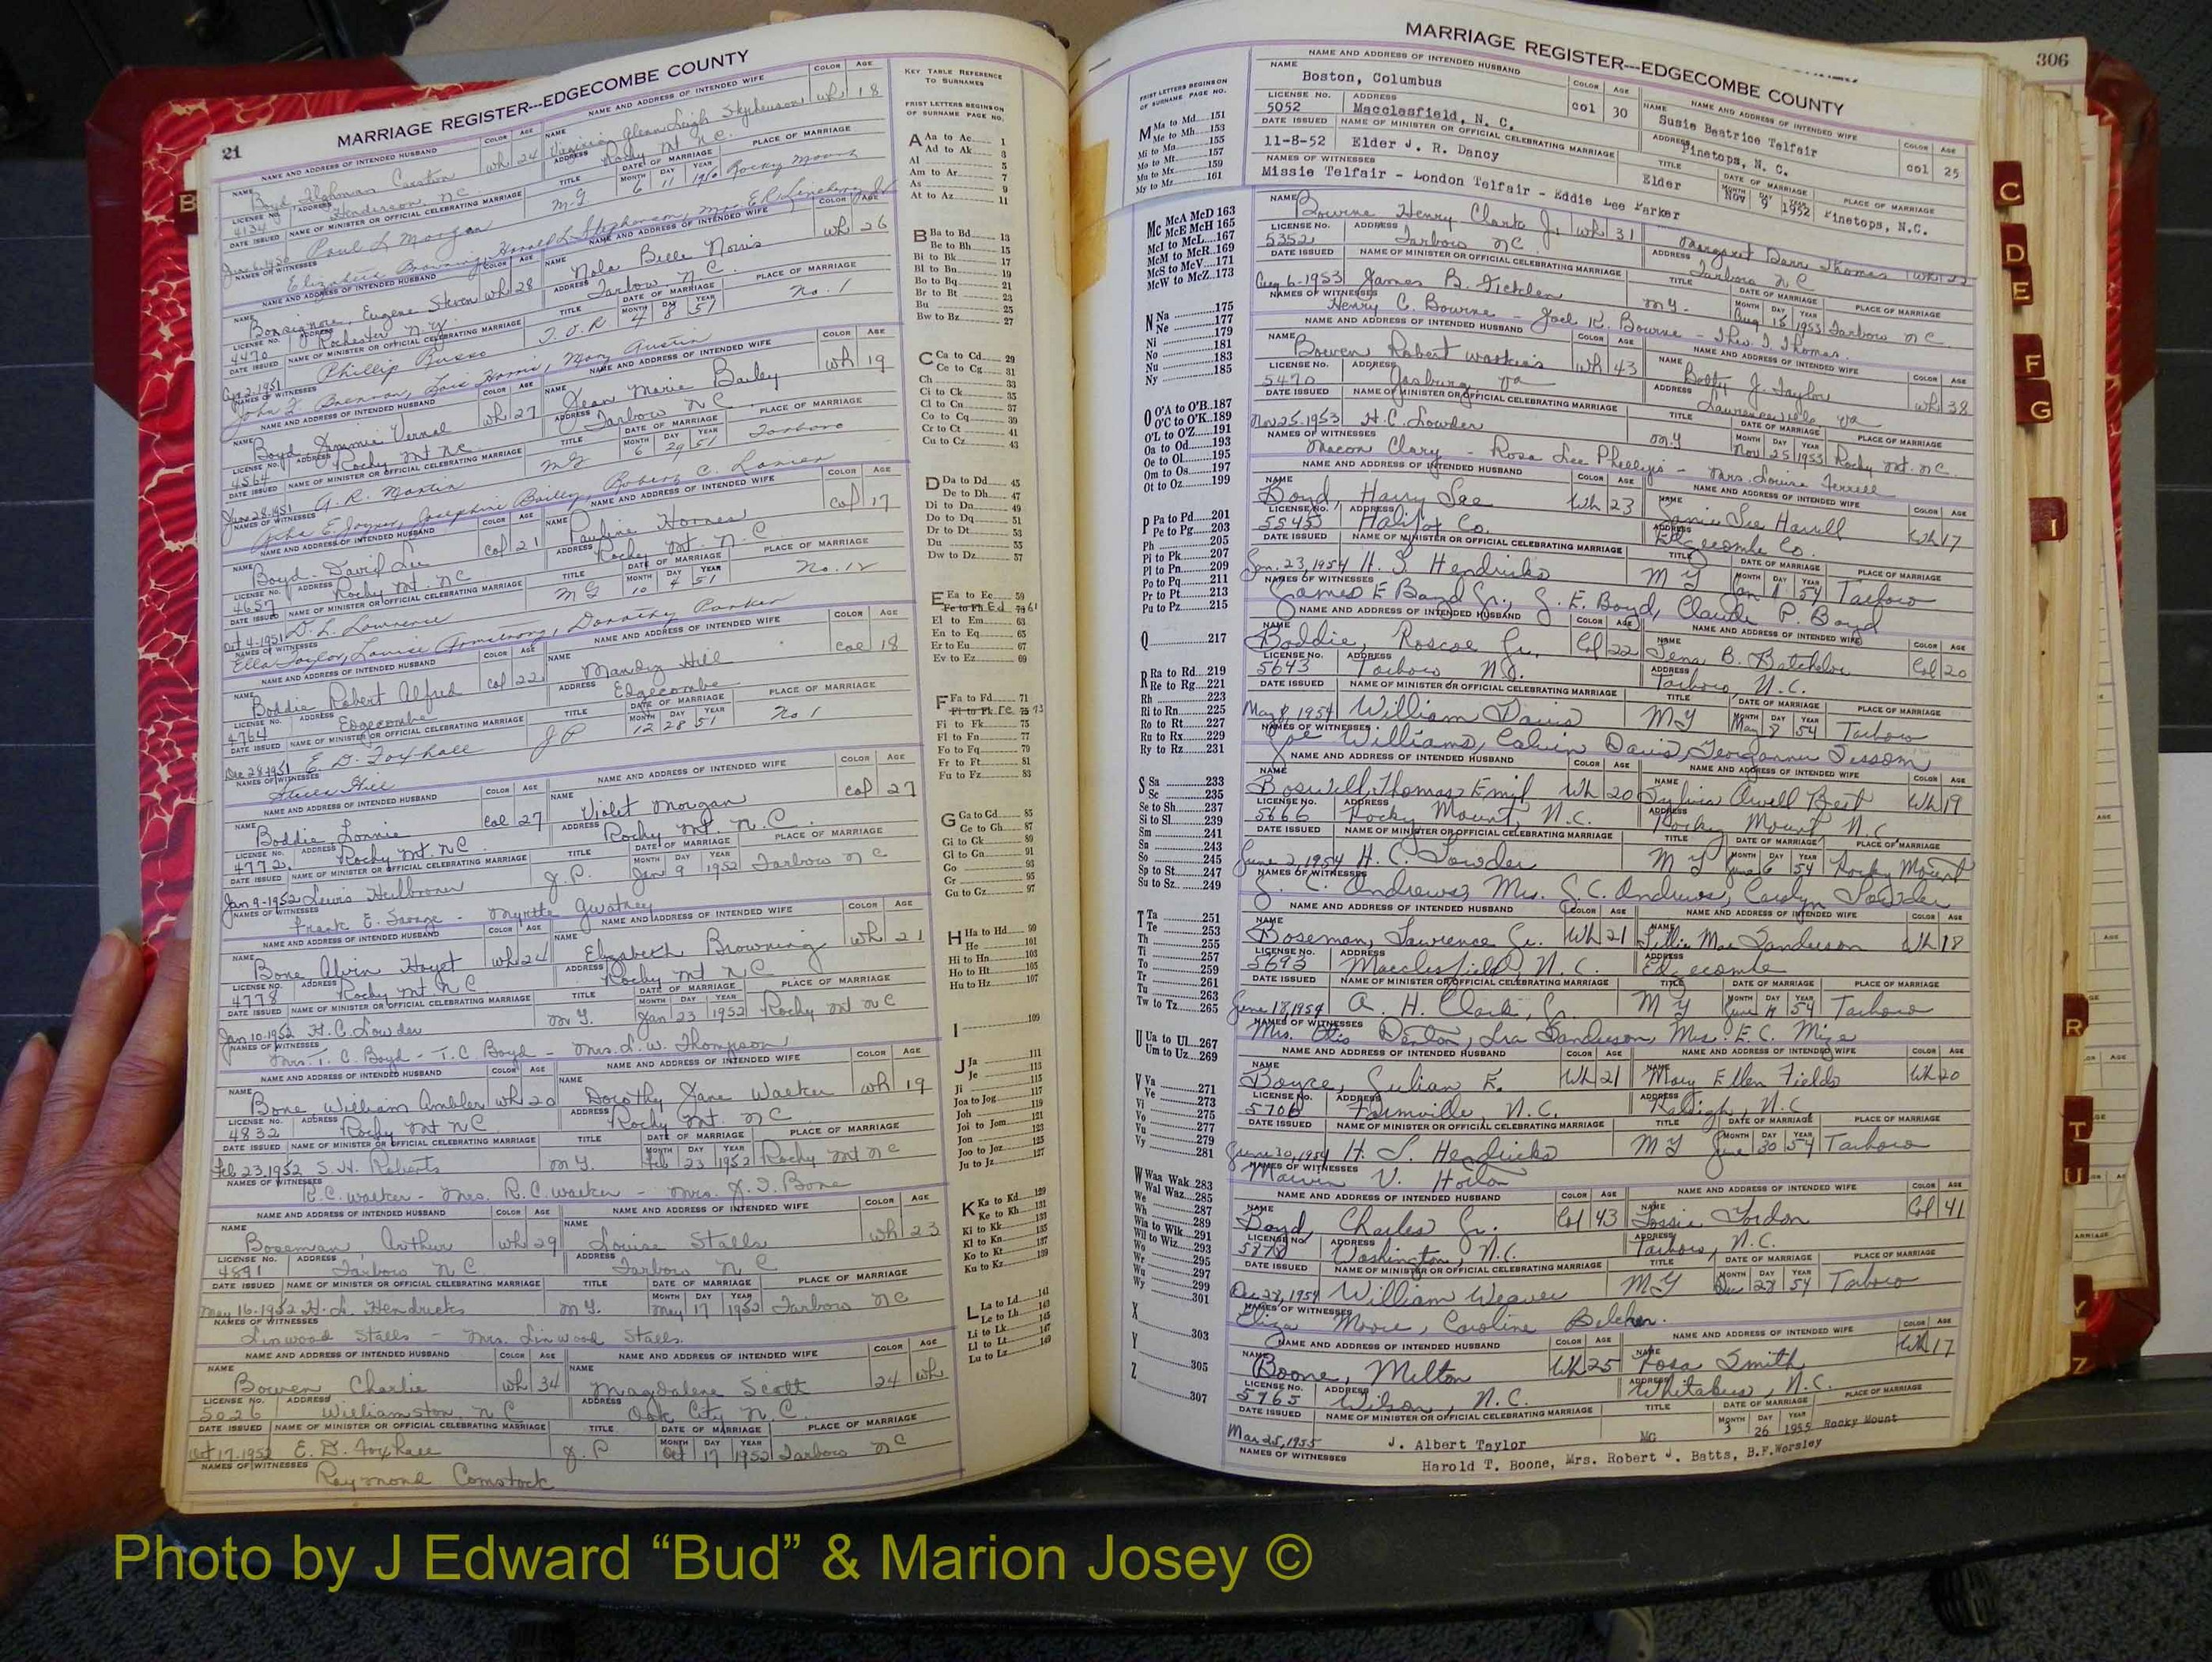 21
MARRIAGE REGISTER---EDGECOMBE COUNTY
NAME AND ADDRESS OF INTENDED HUSBAND COLOR AGE NAME AND ADDRESS OF INTENDED WIFE COLOR AGE
NAME Boyd, Carston wh 24 NAME Virginia Glenn Leigh Stephenson wh 18
LICENSE NO. 4134 ADDRESS Henderson, N.C. ADDRESS Rocky Mt N.C.
DATE ISSUED NAME OF MINISTER OR OFFICIAL CELEBRATING MARRIAGE TITLE DATE OF MARRIAGE PLACE OF MARRIAGE
Paul L Morgan MG MONTH 6 DAY 11 YEAR Rocky Mount
NAMES OF WITNESSES Elizabeth Browning, Harold L Stephenson, Mrs. E.R.
NAME Bonsignore, Eugene Steven wh 28 NAME Nola Belle Norris wh 26
LICENSE NO. 4470 ADDRESS Rochester N.Y. ADDRESS Tarboro N.C.
Apr 2, 1951 Phillip Russo 4 8 51 No. 1
NAMES OF WITNESSES John F. Brennan, Lois Harris, Mary Austin
NAME Boyd Jimmie Vernal wh 27 NAME Jean Marie Bailey wh 19
LICENSE NO. 4564 ADDRESS Rocky Mt NC ADDRESS Tarboro N C
June 28, 1951 A. R. Martin MG 6 29 51 Tarboro
NAMES OF WITNESSES E. Joyner, Josephine Bailey, Robert C. Lanier
NAME Boyd - David Lee Col 21 NAME Pauline Hornes Col 17
LICENSE NO. 4657 ADDRESS Rocky Mt. NC ADDRESS Rocky Mt. N.C.
Oct 4-1951 D. L. Lawrence MG 10 4 51 No. 12
NAMES OF WITNESSES Ella Taylor, Louise Armstrong, Dorothy Parker
NAME Boddie Robert Alfred Col 22 NAME Mandy Hill Col 18
LICENSE NO. 4764 ADDRESS Edgecombe ADDRESS Edgecombe
Dec 28 1951 E. D. Foxhall J P 12 28 51 No 1
NAMES OF WITNESSES Hill
NAME Boddie Lonnie Col 27 NAME Violet Morgan Col 27
LICENSE NO. 4772 ADDRESS Rocky Mt. N.C. ADDRESS Rocky Mt. N.C.
Jan 9-1952 Lewis Heilbroner J.P. Jan 9 1952 Tarboro N C
NAMES OF WITNESSES Frank E. Savage - Myrtle Gwatney
NAME Bone Alvin Hoyet wh 24 NAME Elizabeth Browning wh 21
LICENSE NO. 4778 ADDRESS Rocky Mt N.C. ADDRESS Rocky Mt N C
Jan 10-1952 H. C. Lowder M.G. Jan 23 1952 Rocky Mt N C
NAMES OF WITNESSES Mrs. T. C. Boyd - T. C. Boyd - Mrs. L. W. Thompson
NAME Bone William Ambler wh 20 Dorothy Jane Walker wh 19
LICENSE NO. 4832 ADDRESS Rocky Mt N.C. ADDRESS Rocky Mt. N C
Feb 23, 1952 S. H. Roberts M.G. Feb 23 1952 Rocky Mt N C
NAMES OF WITNESSES R. C. Walker - Mrs. R. C. Walker - Mrs. J. I. Bone
NAME Boseman, Arthur wh 29 NAME Louise Stalls wh 23
LICENSE NO. 4891 ADDRESS Tarboro N C ADDRESS Tarboro N C
May 16-1952 H. S. Hendricks M.G. May 17 1952 Tarboro N C
NAMES OF WITNESSES Linwood Stalls - Mrs. Linwood Stalls.
NAME Bowen Charlie wh 34 NAME Magdalene Scott 24 wh
LICENSE NO. 5026 ADDRESS Williamston N C ADDRESS Oak City N.C.
Oct 17, 1952 E. D. Foxhall J. P Oct 17 1952 Tarboro N C
NAMES OF WITNESSES Raymond Comstock
KEY TABLE REFERENCE
TO SURNAMES
FRIST LETTERS BEGINSON
OF SURNAME PAGE NO.
A Aa to Ac 1
Ad to Ak 3
Al 5
Am to Ar 7
As 9
At to Az 11
B Ba to Bd 13
Be to Bh 15
Bi to Bk 17
Bl to Bn 19
Bo to Bq 21
Br to Bt 23
Bu 25
Bw to Bz 27
C Ca to Cd 29
Ce to Cg 31
Ch 33
Ci to Ck 35
Cl to Cn 37
Co to Cq 39
Cr to Ct 41
Cu to Cz 43
D Da to Dd 45
De to Dh 47
Di to Dn 49
Do to Dq 51
Dr to Dt 53
Du 55
Dw to Dz 57
E Ea to Ec 59
Ed 61
El to Em 63
En to Eq 65
Er to Eu 67
Ev to Ez 69
F Fa to Fd 71
Fe 73
Fi to Fk 75
Fl to Fn 77
Fo to Fq 79
Fr to Ft 81
Fu to Fz 83
G Ga to Gd 85
Ge to Gh 87
Gi to Gk 89
Gl to Gn 91
Go 93
Gr 95
Gu to Gz 97
H Ha to Hd 99
He 101
Hi to Hn 103
Ho to Ht 105
Hu to Hz 107
I 109
J Ja 111
Je 113
Ji 115
Joa to Jog 117
Joh 119
Joi to Jom 121
Jon 123
Joo to Joz 125
Ju to Jz 127
K Ka to Kd 129
Ke to Kh 131
Ki to Kk 133
Kl to Kn 135
Ko to Kt 137
Ku to Kz 139
L La to Ld 141
Le to Lh 143
Li to Lk 145
Ll to Lt 147
Lu to Lz 149
FRIST LETTERS BEGINSON
OF SURNAME PAGE NO.
M Ma to Md 151
Me to Mh 153
Mi to Mn 155
Mo to Mt 157
Mu to Mx 159
My to Mz 161
Mc McA McD 163
McE McH 165
McI to McL 167
McM to McR 169
McS to McV 171
McW to McZ 173
N Na 175
Ne 177
Ni 179
No 181
Nu 183
Ny 185
O O'A to O'B 187
O'C to O'K 189
O'L to O'Z 191
Oa to Od 193
Oe to Ol 195
Om to Os 197
Ot to Oz 199
P Pa to Pd 201
Pe to Pg 203
Ph 205
Pi to Pk 207
Pl to Pn 209
Po to Pq 211
Pr to Pt 213
Pu to Pz 215
Q 217
R Ra to Rd 219
Re to Rg 221
Rh 223
Ri to Rn 225
Ro to Rt 227
Ru to Rx 229
Ry to Rz 231
S Sa 233
Sc 235
Se to Sh 237
Si to Sl 239
Sm 241
Sn 243
So 245
Sp to St 247
Su to Sz 249
T Ta 251
Te 253
Th 255
Ti 257
To 259
Tr 261
Tu 263
Tw to Tz 265
U Ua to Ul 267
Um to Uz 269
V Va 271
Ve 273
Vi 275
Vo 277
Vu 279
Vy 281
W Waa Wak 283
Wal Waz 285
We 287
Wh 289
Wia to Wik 291
Wil to Wiz 293
Wo 295
Wr 297
Wu 299
Wy 301
X 303
Y 305
Z 307
306
MARRIAGE REGISTER---EDGECOMBE COUNTY
NAME AND ADDRESS OF INTENDED HUSBAND COLOR AGE NAME AND ADDRESS OF INTENDED WIFE COLOR AGE
NAME Boston, Columbus col 30 NAME Susie Beatrice Telfair col 25
LICENSE NO. 5052 ADDRESS Macclesfield, N. C. ADDRESS Pinetops, N. C.
DATE ISSUED NAME OF MINISTER OR OFFICIAL CELEBRATING MARRIAGE TITLE DATE OF MARRIAGE PLACE OF MARRIAGE
11-8-52 Elder J. R. Dancy Elder Nov 9 1952 Pinetops, N.C.
NAMES OF WITNESSES
Missie Telfair - London Telfair - Eddie Lee Parker
NAME Bourne Henry Clark Jr wh 31 Margaret Barr Thomas wh 22
LICENSE NO. 5352 ADDRESS Tarboro NC ADDRESS Tarboro N C
Aug 6-1953 James B. Ficklen M.G. Aug 15 1953 Tarboro N C.
NAMES OF WITNESSES Henry C. Bourne - Joel K. Bourne - Theo. T Thomas.
NAME Bowen Robert Watkins wh 43 NAME Betty J. Taylor wh 38
LICENSE NO. 5470 ADDRESS Va ADDRESS Lawrenceville, Va
Nov 25-1953 H. C. Lowder M.G Nov 25 1953 Rocky Mt. N C.
NAMES OF WITNESSES Macon Clary - Rosa Lee Phillips - Mrs. Louise Ferrell
NAME Boyd, Harry Lee Wh 23 NAME Janie Lee Harrell Wh 17
LICENSE NO. 5545 ADDRESS Halifax Co. ADDRESS Edgecombe Co.
Jan. 23, 1954 H. S. Hendricks M G Jan 54 Tarboro
NAMES OF WITNESSES James E Boyd Jr., J. E. Boyd, Claude P. Boyd
NAME Boddie, Roscoe Jr. Col 22 NAME Lena B. Batchelor Col 20
LICENSE NO. 5643 ADDRESS Tarboro N.C. ADDRESS Tarboro, N.C.
May 8, 1954 William Davis M G May 8 54 Tarboro
NAMES OF WITNESSES Joe Williams, Calvin Davis, Georganna Sessom
NAME Boswell, Thomas Emil Wh 20 NAME Sylvia Best Wh 19
LICENSE NO. 5666 ADDRESS Rocky Mount, N.C. ADDRESS Rocky Mount N.C
June 2, 1954 H. C. Lowder M G June 6 54 Rocky Mount
NAMES OF WITNESSES J. C. Andrews, Mrs. J. C. Andrews, Carolyn Lowder
NAME Boseman, Lawrence Jr. Wh 21 NAME Lillie Mae Sanderson Wh 18
LICENSE NO. 5693 ADDRESS Macclesfield, N.C. ADDRESS Edgecombe
June 18, 1954 A. H. Clark, Jr. M G June 54 Tarboro
NAMES OF WITNESSES Mrs. Otis Denton, Ira Sanderson, Mrs. E. C. Mize
NAME Boyce, Julian E. Wh 21 NAME Mary Ellen Fields Wh 20
LICENSE NO. 5706 ADDRESS Farmville, N.C. ADDRESS Raleigh, N.C
June 30, 1954 H. S. Hendricks M G June 30 54 Tarboro
NAMES OF WITNESSES Marvin V. Horton
NAME Boyd, Charles Jr. Col 43 NAME Lossie Gordon Col 41
LICENSE NO. 5878 ADDRESS Washington, N.C. ADDRESS Tarboro, N.C.
Dec 28, 1954 William Weaver M G Dec 28 54 Tarboro
NAMES OF WITNESSES Eliza Moore, Caroline Belcher.
NAME Boone, Melton Wh 25 NAME Rosa Smith Wh 17
LICENSE NO. 5965 ADDRESS Wilson, N.C. ADDRESS Whitakers, N.C.
Mar 25, 1955 J. Albert Taylor MG 3 26 1955 Rocky Mount
NAMES OF WITNESSES Harold T. Boone, Mrs. Robert J. Batts, B.F.Worsley
B
C
D
E
F
G
I
R
T
U
Y
Z
Photo by J Edward “Bud” & Marion Josey ©